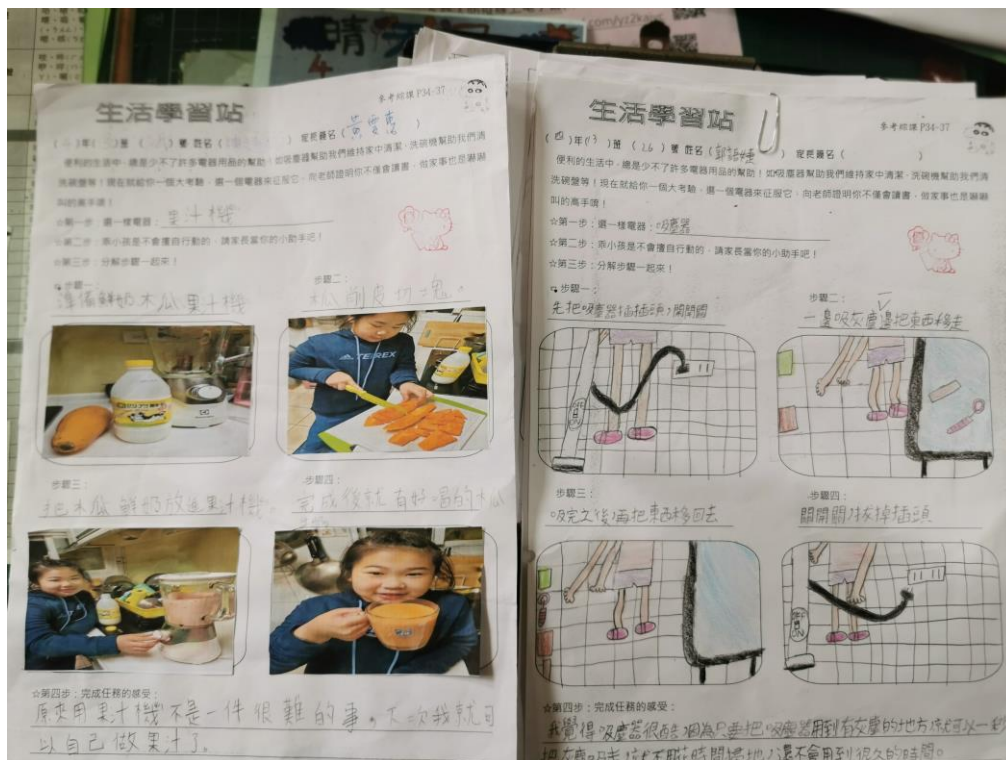 晴
4
com/yz2k
參考翰課 P34-37
生活學習站
( )年( )班 ( )號 姓名( ) 家長簽名( )
便利的生活中,總是少不了許多電器用品的幫助!如吸塵器幫助我們維持家中清潔、洗碗機幫助我們清
洗碗盤等!現在就給你一個大考驗,選一個電器來征服它,向老師證明你不僅會讀書,做家事也是嚇嚇
叫的高手唷!
☆第一步:選一樣電器:果汁機
☆第二步:乖小孩是不會擅自行動的,請家長當你的小助手吧!
☆第三步:分解步驟一起來!
步驟一:
準備鮮奶木瓜果汁機
步驟二:
木瓜削皮切塊。
TERREX
步驟三:
把木瓜鮮奶放進果汁機。
步驟四:
完成後就有好喝的木瓜
☆第四步:完成任務的感受:
原來用果汁機不是一件很難的事。下次我就可
以自己做果汁了。
參考翰課 P34-37
生活學習站
(四)年(13)班 (26)號 姓名( ) 家長簽名( )
便利的生活中,總是少不了許多電器用品的幫助!如吸塵器幫助我們維持家中清潔、洗碗機幫助我們清
洗碗盤等!現在就給你一個大考驗,選一個電器來征服它,向老師證明你不僅會讀書,做家事也是嚇嚇
叫的高手唷!
☆第一步:選一樣電器:吸塵器
☆第二步:乖小孩是不會擅自行動的,請家長當你的小助手吧!
☆第三步:分解步驟一起來!
步驟一:
先把吸塵器插插頭,開開關
步驟二:
一邊吸灰塵邊把東西移走
步驟三:
吸完之後再把東西移回去
步驟四:
關開關,拔掉插頭
☆第四步:完成任務的感受:
我覺得吸塵器很酷,因為只要把吸塵器用到有灰塵的地方就可以一秒